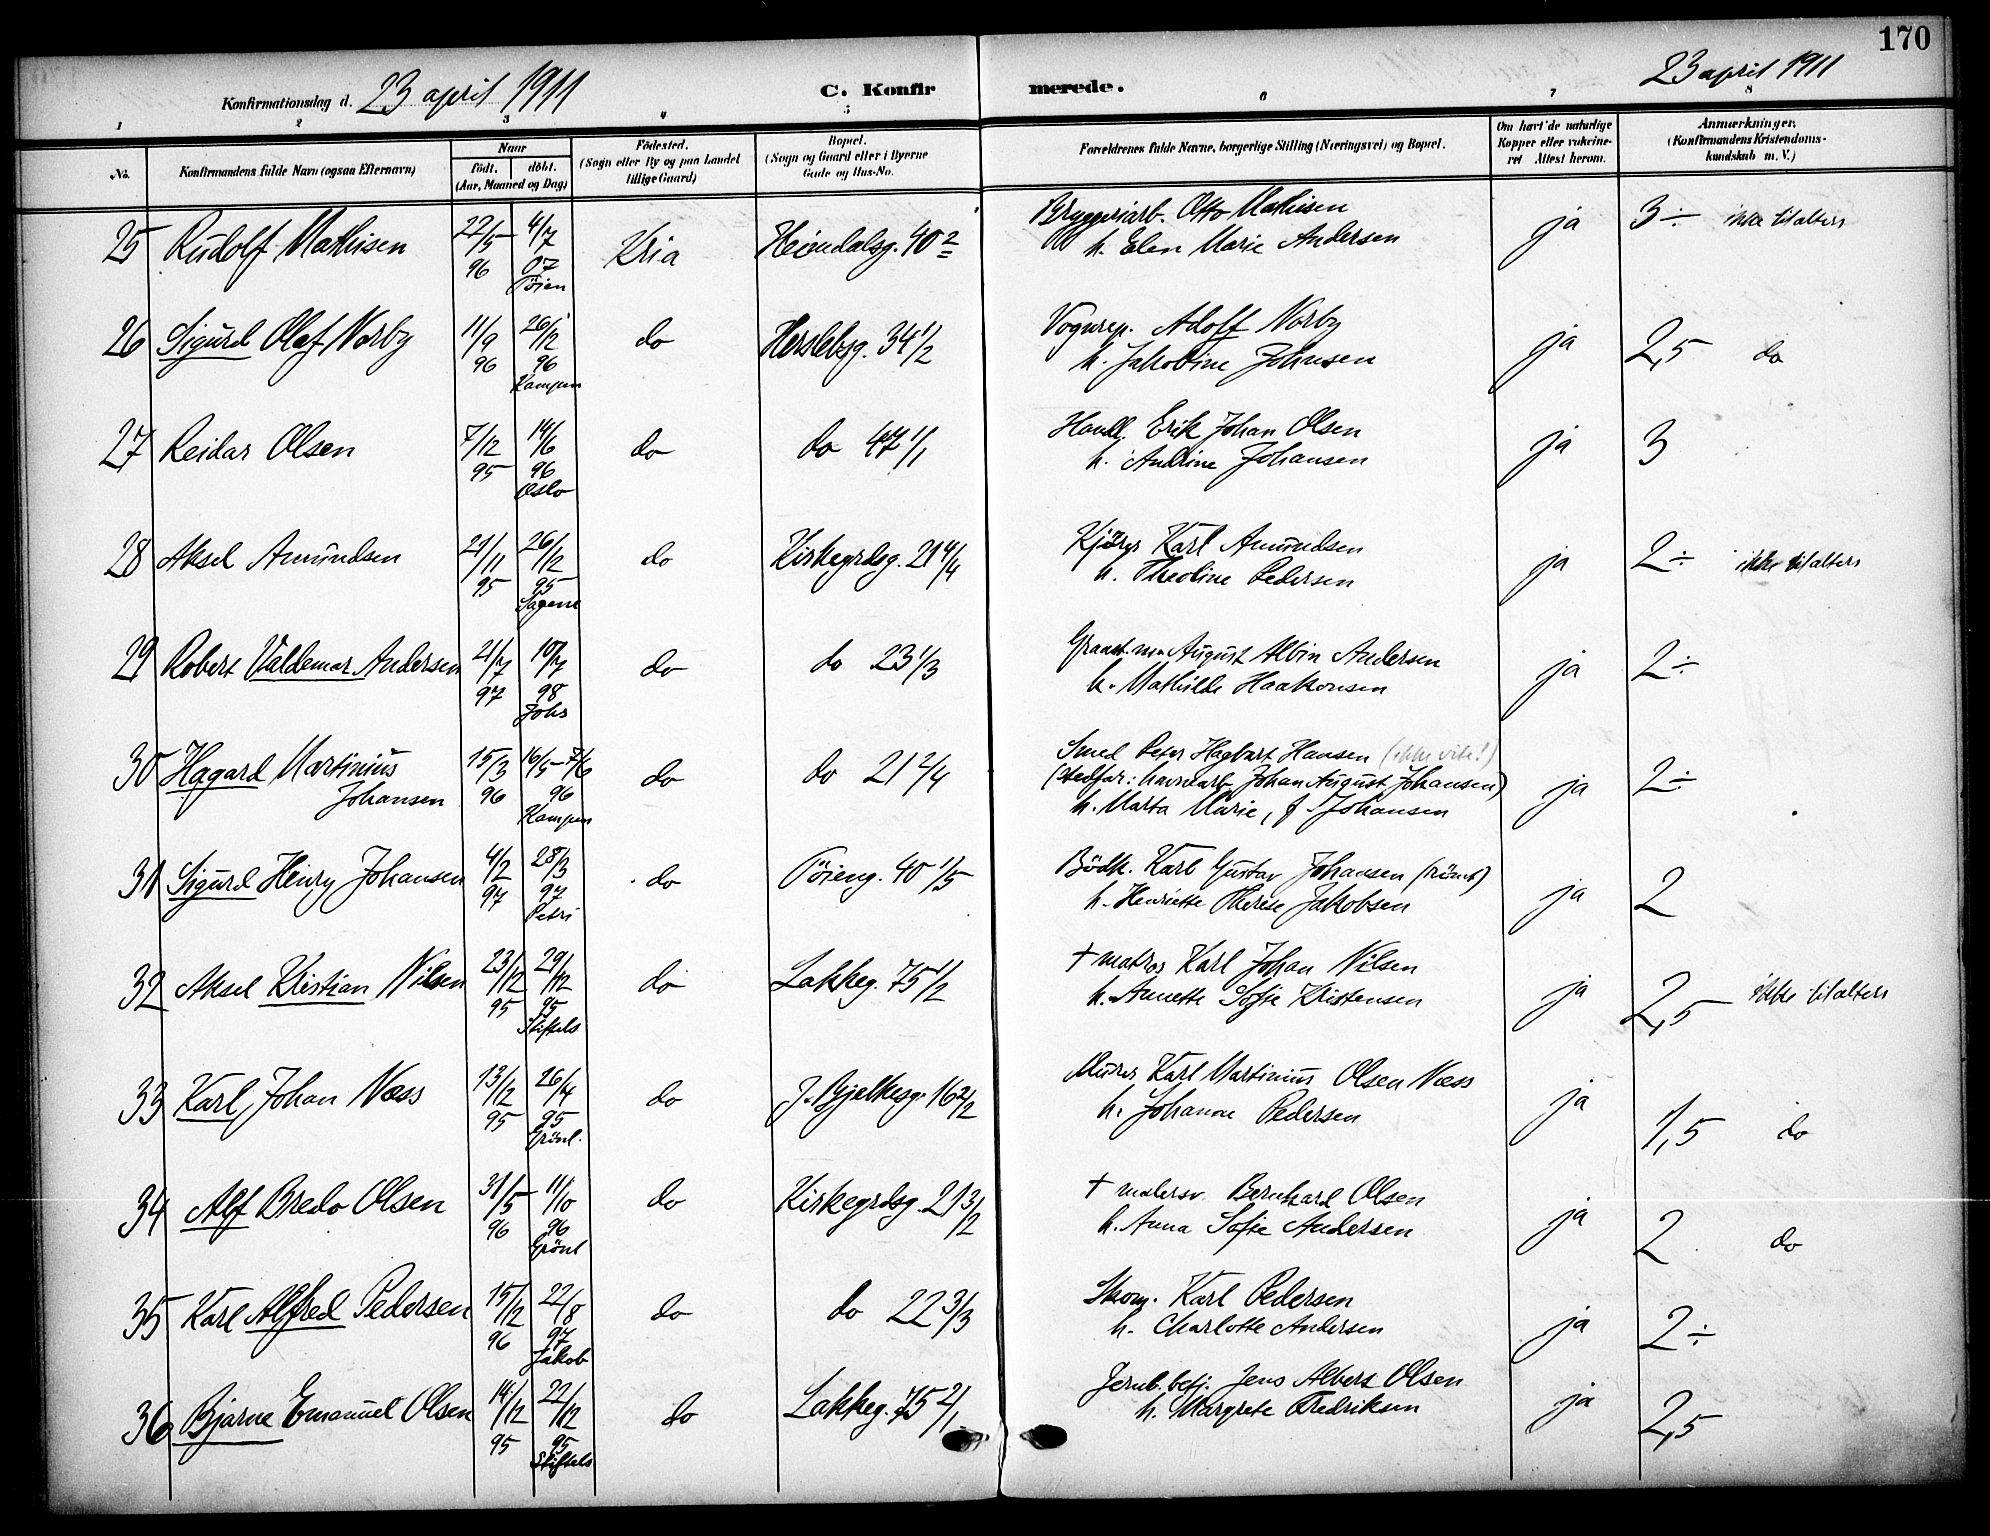 170
Konfirmationsdag d. 23 april 1911
C. Konfirmerede.
23 april 1911
1 2 3 4 5 6 7 8
No.
Konfirmandens fulde Navn (ogsaa Efternavn)
Naar
født. døbt.
(Aar, Maaned og Dag)
Fødested.
(Sogn eller By og paa Landet
tillige Gaard)
Bopæl.
(Sogn og Gaard eller i Byerne
Gade og Hus-No.
Forældrenes fulde Navne, borgerlige Stilling (Næringsvei) og Bopæl.
Om havt de naturlige
Kopper eller vakcine-
ret Attest herom.
Anmærkninger.
(Konfirmandens Kristendoms-
kundskab m. V.)
25 Rudolf Mathisen 22/5 96 4/7 07 Töien Kria Heimdalsg. 40 2 Bryggeriarb. Otto Mathisen ja 3÷ ikke til alters
h. Elen Marie Andersen
26 Sigurd Olaf Norby 11/9 96 26/12 96 Kampen do Herslebsg. 34 1/2 Vognrep. Adolf Norby ja 2,5 do
h. Jakobine Johnsen
27 Reidar Olsen 7/12 95 14/6 96 Oslo do do 47 1/1 Handl. Erik Johan Olsen ja 3
h. Andrine Johansen
28 Aksel Amundsen 21/11 95 26/12 95 Sagene do Kirkegrdsg. 21 4/4 Kjörer Karl Amundsen ja 2÷ ikke til alters
h. Theoline Pedersen
29 Robert Valdemar Andersen 21/7 97 10/7 98 Johs do do 23 1/3 August Albin Andersen ja 2÷
h. Mathilde Haakonsen
30 Hagard Martinius 15/3 96 16/5-7/6 96 Kampen do do 21 2/4 Smed Peter Hagbart Hansen (ikke vite!) ja 2÷
Johansen (stedfar: havnearb. Johan August Johansen)
h. Marta Marie, f. Johansen
31 Sigurd Henry Johansen 4/2 97 28/3 97 Petri do Töieng. 40 1/5 Bödk. Karl Gustav Johansen (römt) ja 2
h. Henriette Therese Jakobsen
32 Aksel Kristian Nilsen 23/12 95 29/12 95 Stiftels do Lakkeg. 75 1/2 † matros Karl Johan Nilsen ja 2,5 ikke til alters
h. Annette Sofie Kristensen
33 Karl Johan Næss 13/12 95 26/4 95 Grönl. do J. Bjelkesg. 16 2/2 Murer Karl Martinius Olsen Næss ja 1,5 do
h. Johanne Pedersen
34 Alf Bredo Olsen 31/5 96 11/10 96 Grönl do Kirkegrdsg. 21 3/2 † malersv. Bernhard Olsen ja 2 do
h. Anna Sofie Andersen
35 Karl Alfred Pedersen 15/12 96 22/8 97 Jakob do do 22 3/3 Skom. Karl Pedersen ja 2÷
h. Charlotte Andersen
36 Bjarne Emanuel Olsen 14/12 95 22/12 95 Stiftels do Lakkeg. 75 2/1 Jernb. betj. Jens Albert Olsen ja 2,5
h. Margrete Fredriksen